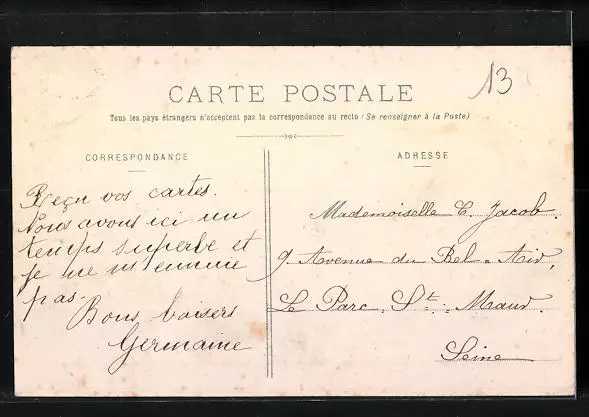 13
CARTE POSTALE
Tous les pays étrangers n'acceptent pas la correspondance au recto (Se renseigner à la Poste)
CORRESPONDANCE
Reçu vos cartes.
Nous avons ici un
temps superbe et
je ne m'ennuie
pas.
Bons baisers
Germaine
ADRESSE
Mademoiselle C. Jacob.
9 Avenue du Bel-Air,
Le Parc St-Maur.
Seine